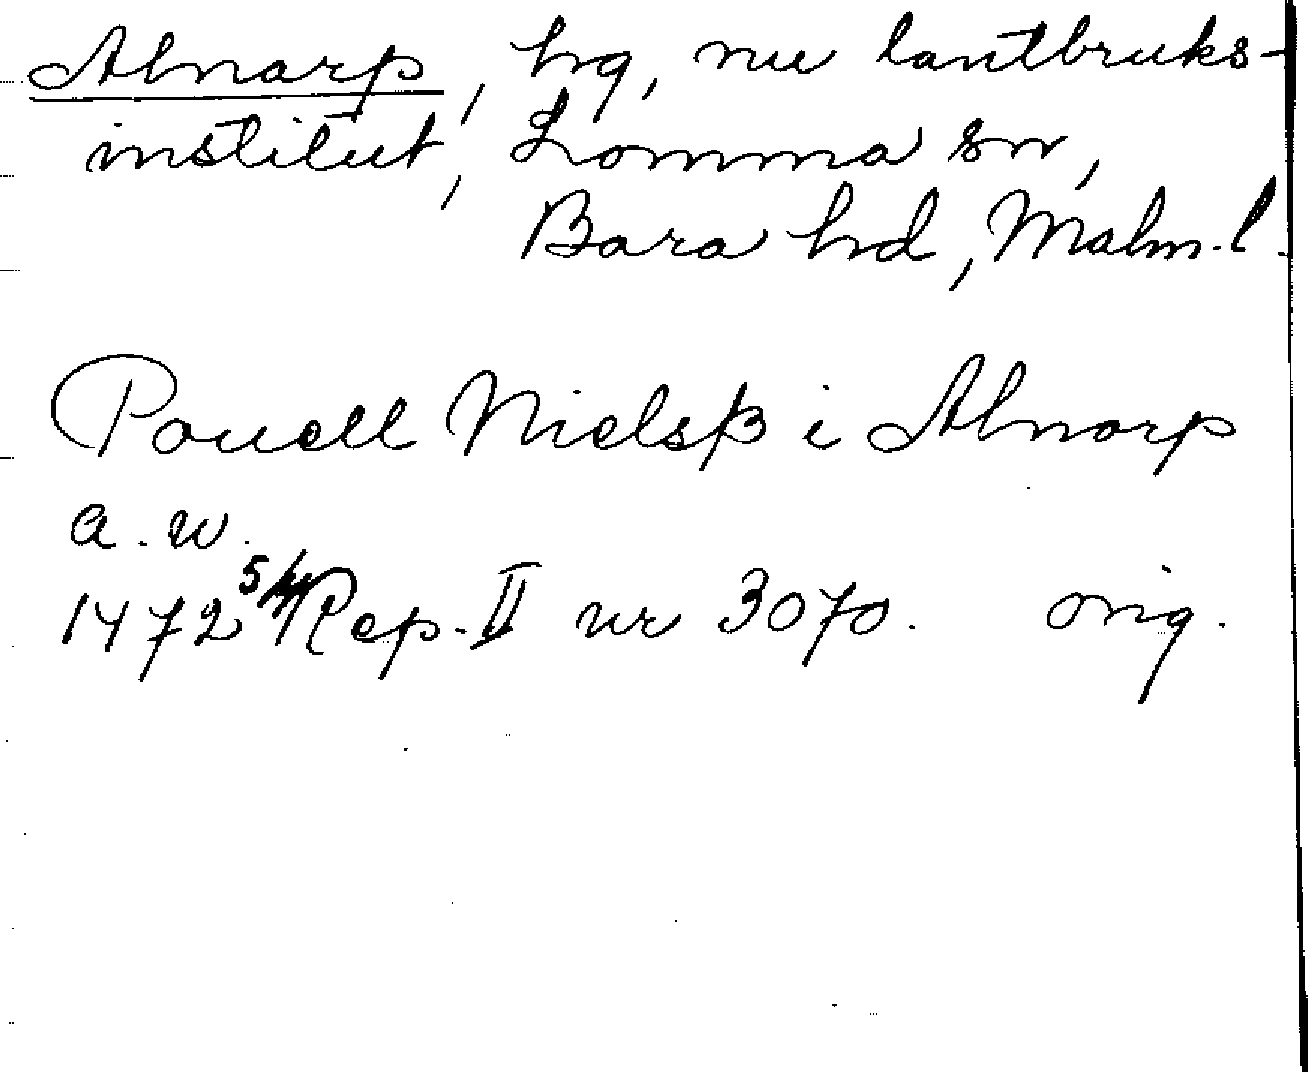 Alnarp, hg, nu lantbruks-
institut, Lomma sn,
Bara hd, Malm. l.
Pouell Nielsß i Alnarp
a. w.
1472 5/4 Rep. II nr 3070. orig.